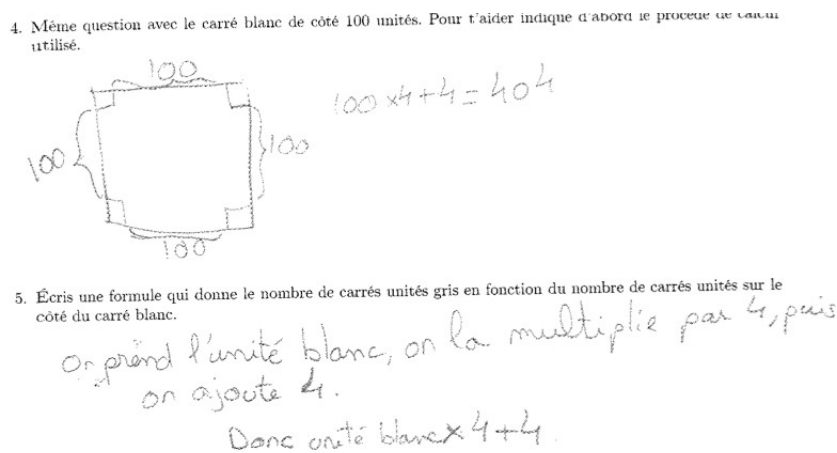 4. Même question avec le carré blanc de côté 100 unités. Pour t'aider indique d'abord le procédé de calcul
utilisé.
100
100 x4+4=404
100
100
100
5. Écris une formule qui donne le nombre de carrés unités gris en fonction du nombre de carrés unités sur le
côté du carré blanc.
On prend l'unité blanc, on la multiplie par 4, puis
on ajoute 4.
Donc unité blanc x 4+4